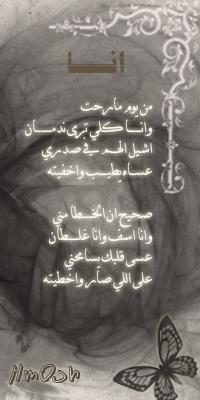 انا
من يوم مارحت
وانـــا كلي ترى ندمـــان
اشيل الهـم في صدري
عســـاه يطيـــب واخفيته
صحيح ان الخـــطا مني
وانا اسف وانا غلـــطان
عسى قلبك يسامحني
على اللي صـار واخطيته